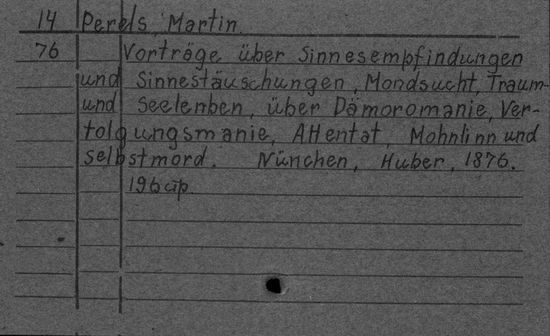 14 Perels Martin.
76 Vorträge über Sinnesempfindungen
und Sinnestäuschungen, Mondsucht, Traum-
und Seelenben, über Dämoromanie, Ver-
tolgungsmanie, Attentat, Mohnlinn und
selbstmord. Nünchen, Huber, 1876.
196